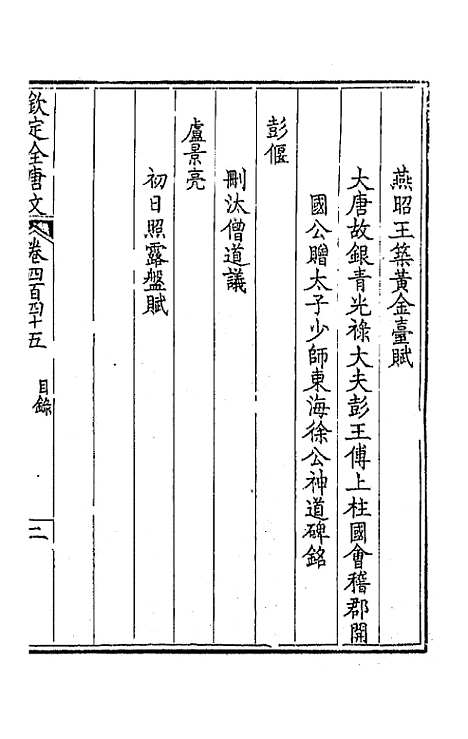 燕昭王築黃金臺賦
大唐故銀青光祿大夫彭王傅上柱國會稽郡開
國公贈太子少師東海徐公神道碑銘
彭偃
刪汰僧道議
盧景亮
初日照露盤賦
欽定全唐文 卷四百四十五 目錄 二